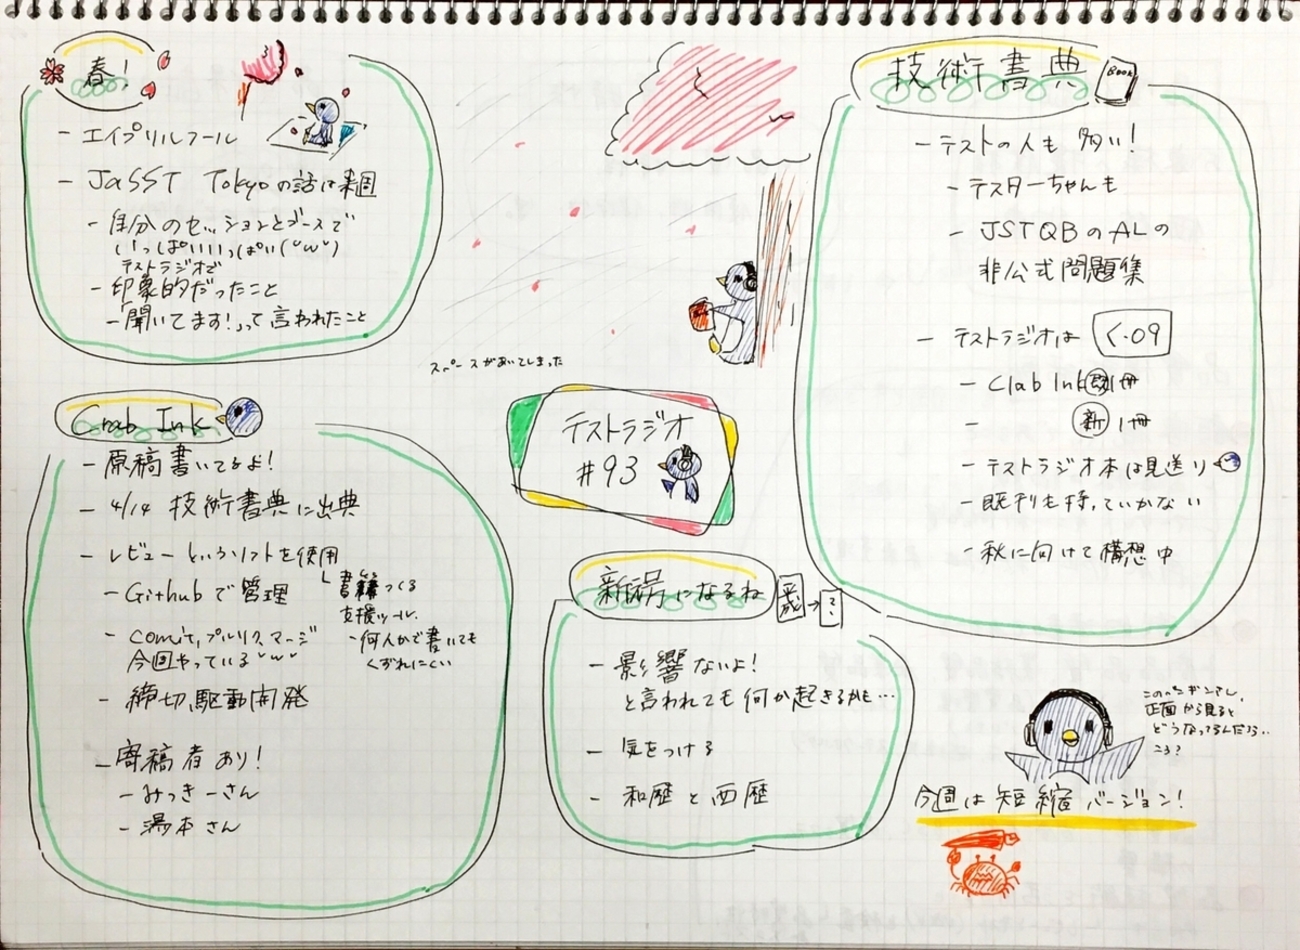 春!
- エイプリルフール
- JaSST Tokyoの話は来週
- 自分のセッションとブースで
いっぱいいっぱい('ω')
テストラジオで
- 印象的だったこと
-「聞いてます!」って言われたこと
Crab Ink
- 原稿書いてるよ!
- 4/14 技術書典に出典
- レビューというソフトを使用
└ 書籍つくる
支援ツール.
- 何人かで書いても
くずれにくい
- Githubで管理
- comit, プルリク, マージ
今回やっている 'ω'
- 締切駆動開発
- 寄稿者あり!
- みっきーさん
- 湯本さん
スペースがあいてしまった
テストラジオ
#93
新元号になるね
平成→?
- 影響ないよ!
と言われても何か起きるかも…
- 気をつける
- 和歴と西歴
技術書典
BOOK
- テストの人も多い!
- テスターちゃんも
- JSTQBのALの
非公式問題集
- テストラジオは く-09
- Clab Ink 既刊1冊
- 新 1冊
- テストラジオ本は見送り
- 既刊も持っていかない
- 秋に向けて構想中
このペンギンさん,
正面から見ると
どうなってるんだろ..
ころ?
今週は短縮バージョン!